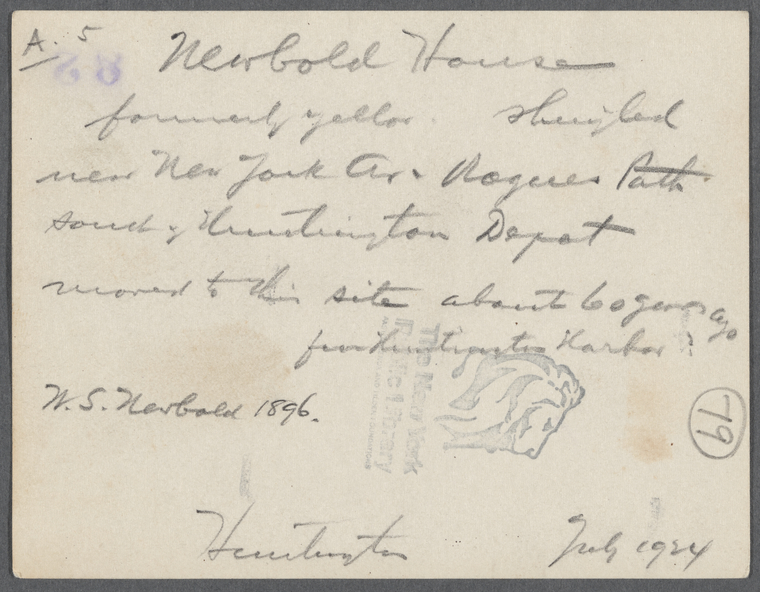 A. 5
82
Newbold House
formerly yellow shingled
near New York Av. Rogues Path
south of Huntington Depot
moved to this site about 60 years ago
from Huntington Harbor
The New York
Public Library
W. S. Newbold 1896.
79
Huntington July 1924